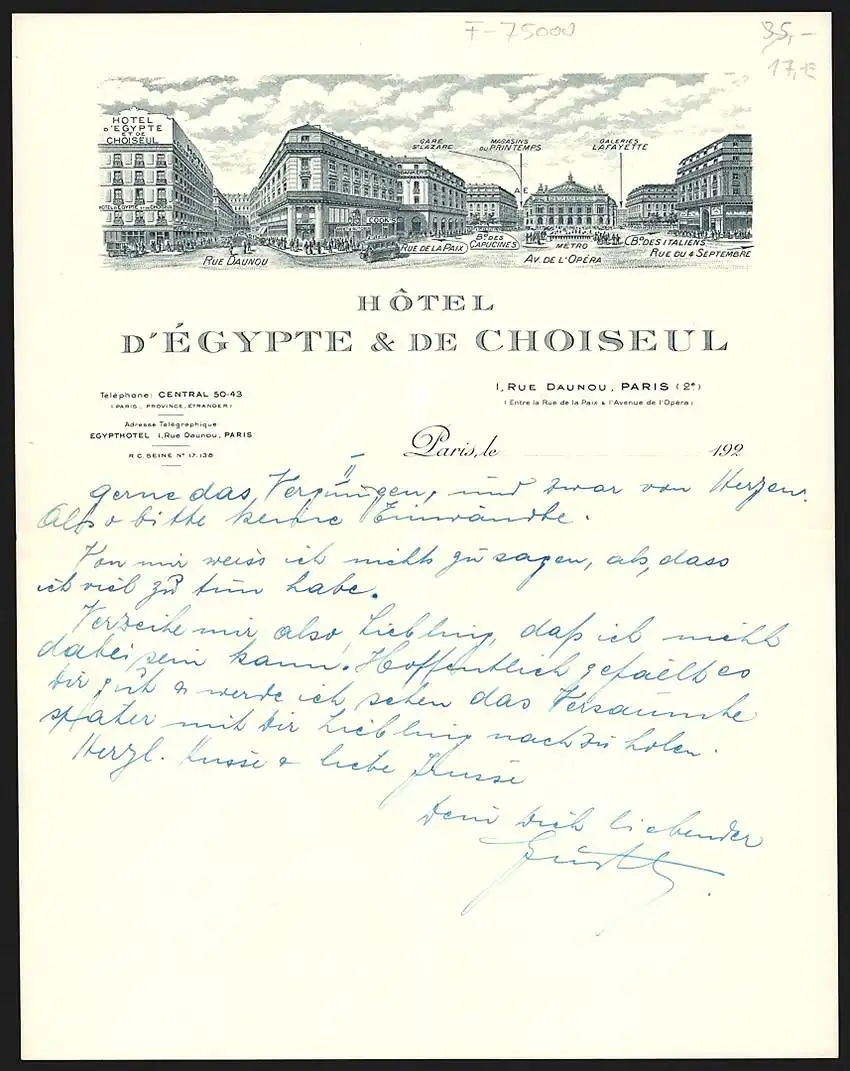 F-75000
35,-
17,-€
HOTEL
D'EGYPTE
ET DE
CHOISEUL
HOTEL D'EGYPTE ET DE CHOISEUL
GARE
ST LAZARE
MAGASINS
DU PRINTEMPS
GALERIES
LAFAYETTE
COOK'S
RUE DAUNOU
RUE DE LA PAIX
Bd DES
CAPUCINES
MÉTRO
Bd DES ITALIENS
AV. DE L'OPÉRA
RUE DU 4 SEPTEMBRE
HÔTEL
D'ÉGYPTE & DE CHOISEUL
Téléphone: CENTRAL 50-43
(PARIS, PROVINCE, ÉTRANGER)
Adresse Télégraphique:
EGYPTHOTEL 1, Rue Daunou, PARIS
R.C. SEINE N° 17.138
1, RUE DAUNOU, PARIS (2e)
(Entre la Rue de la Paix & l'Avenue de l'Opéra)
Paris, le 192
II
gerne das Vergnügen, und zwar von Herzen.
Also bitte keine Einwände.
Von mir weiss ich nichts zu sagen, als, dass
ich viel zu tun habe.
Verzeihe mir also, Liebling, daß ich nicht
dabei sein kann. Hoffentlich gefaellt es
Dir gut & werde ich sehen das Versäumte
später mit Dir Liebling nachzuholen.
Herzl. Küsse & liebe Grüsse
Dein Dich liebender